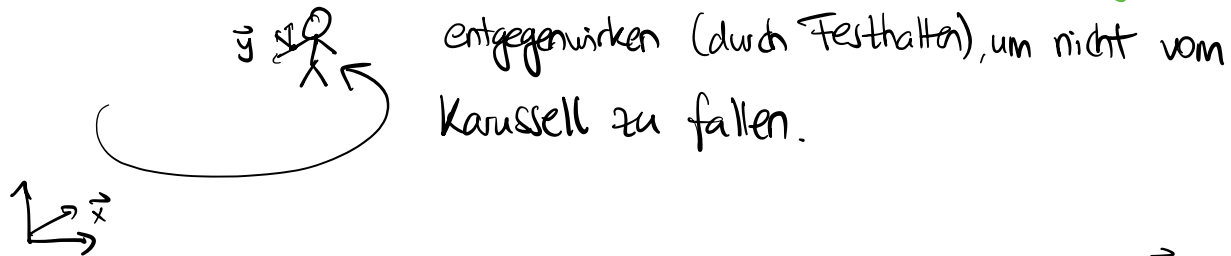 entgegenwirken (durch Festhalten), um nicht vom
y⃗
Karussell zu fallen.
x⃗